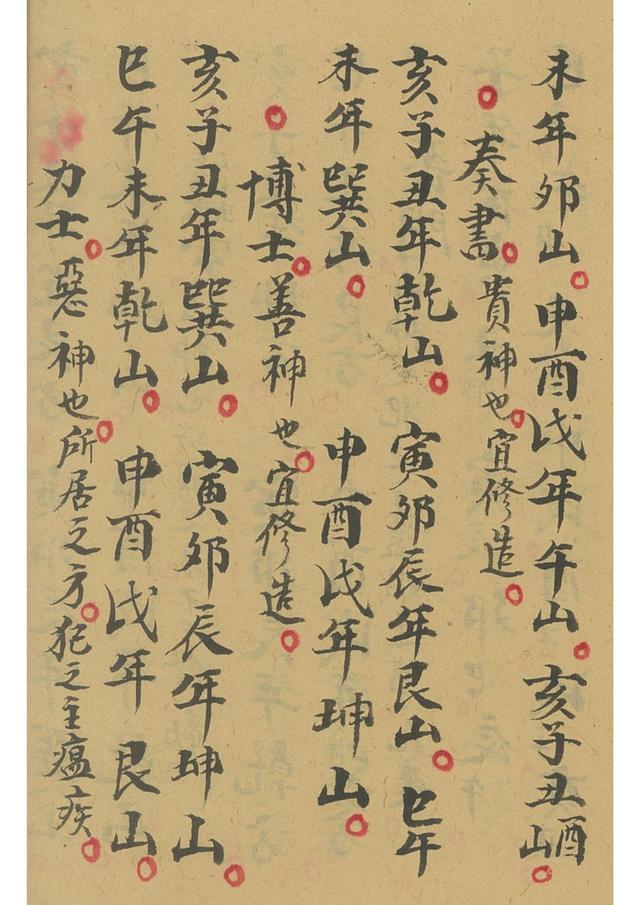 未年卯山。申酉戌年午山。亥子丑酉山。
奏書。貴神也。宜修造。
亥子丑年乾山。寅卯辰年艮山。巳午
未年巽山。申酉戌年坤山。
博士。善神也。宜修造。
亥子丑年巽山。寅卯辰年坤山。
巳午未年乾山。申酉戌年艮山。
力士。惡神也。所居之方。犯之主瘟疾。